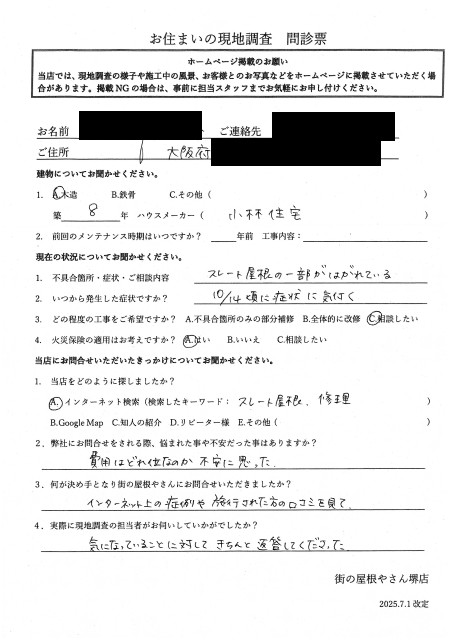 お住まいの現地調査 問診票
ホームページ掲載のお願い
当店では、現地調査の様子や施工中の風景、お客様とのお写真などをホームページに掲載させていただく場
合があります。掲載NGの場合は、事前に担当スタッフまでお気軽にお申し付けください。
お名前 ご連絡先
ご住所 大阪府
建物についてお聞かせください。
1. A.木造 B.鉄骨 C.その他( )
築 8 年 ハウスメーカー( 小林住宅 )
2. 前回のメンテナンス時期はいつですか? 年前 工事内容:
現在の状況についてお聞かせください。
1. 不具合箇所・症状・ご相談内容 スレート屋根の一部がはがれている
2. いつから発生した症状ですか? 10/14頃に症状に気付く
3. どの程度の工事をご希望ですか? A.不具合箇所のみの部分補修 B.全体的に改修 C.相談したい
4. 火災保険の適用はお考えですか? A.はい B.いいえ C.相談したい
当店にお問合せいただいたきっかけについてお聞かせください。
1. 当店をどのように探しましたか?
A.インターネット検索(検索したキーワード: スレート屋根、修理 )
B.Google Map C.知人の紹介 D.リピーター様 E.その他( )
2. 弊社にお問合せをされる際、悩まれた事や不安だった事はありますか?
費用はどれ位なのか不安に思った.
3. 何が決め手となり街の屋根やさんにお問合せいただきましたか?
インターネット上の症例や施行された方の口コミを見て.
4. 実際に現地調査の担当者がお伺いしていかがでしたか?
気になっていることに対してきちんと返答してくださった
街の屋根やさん堺店
2025.7.1 改定